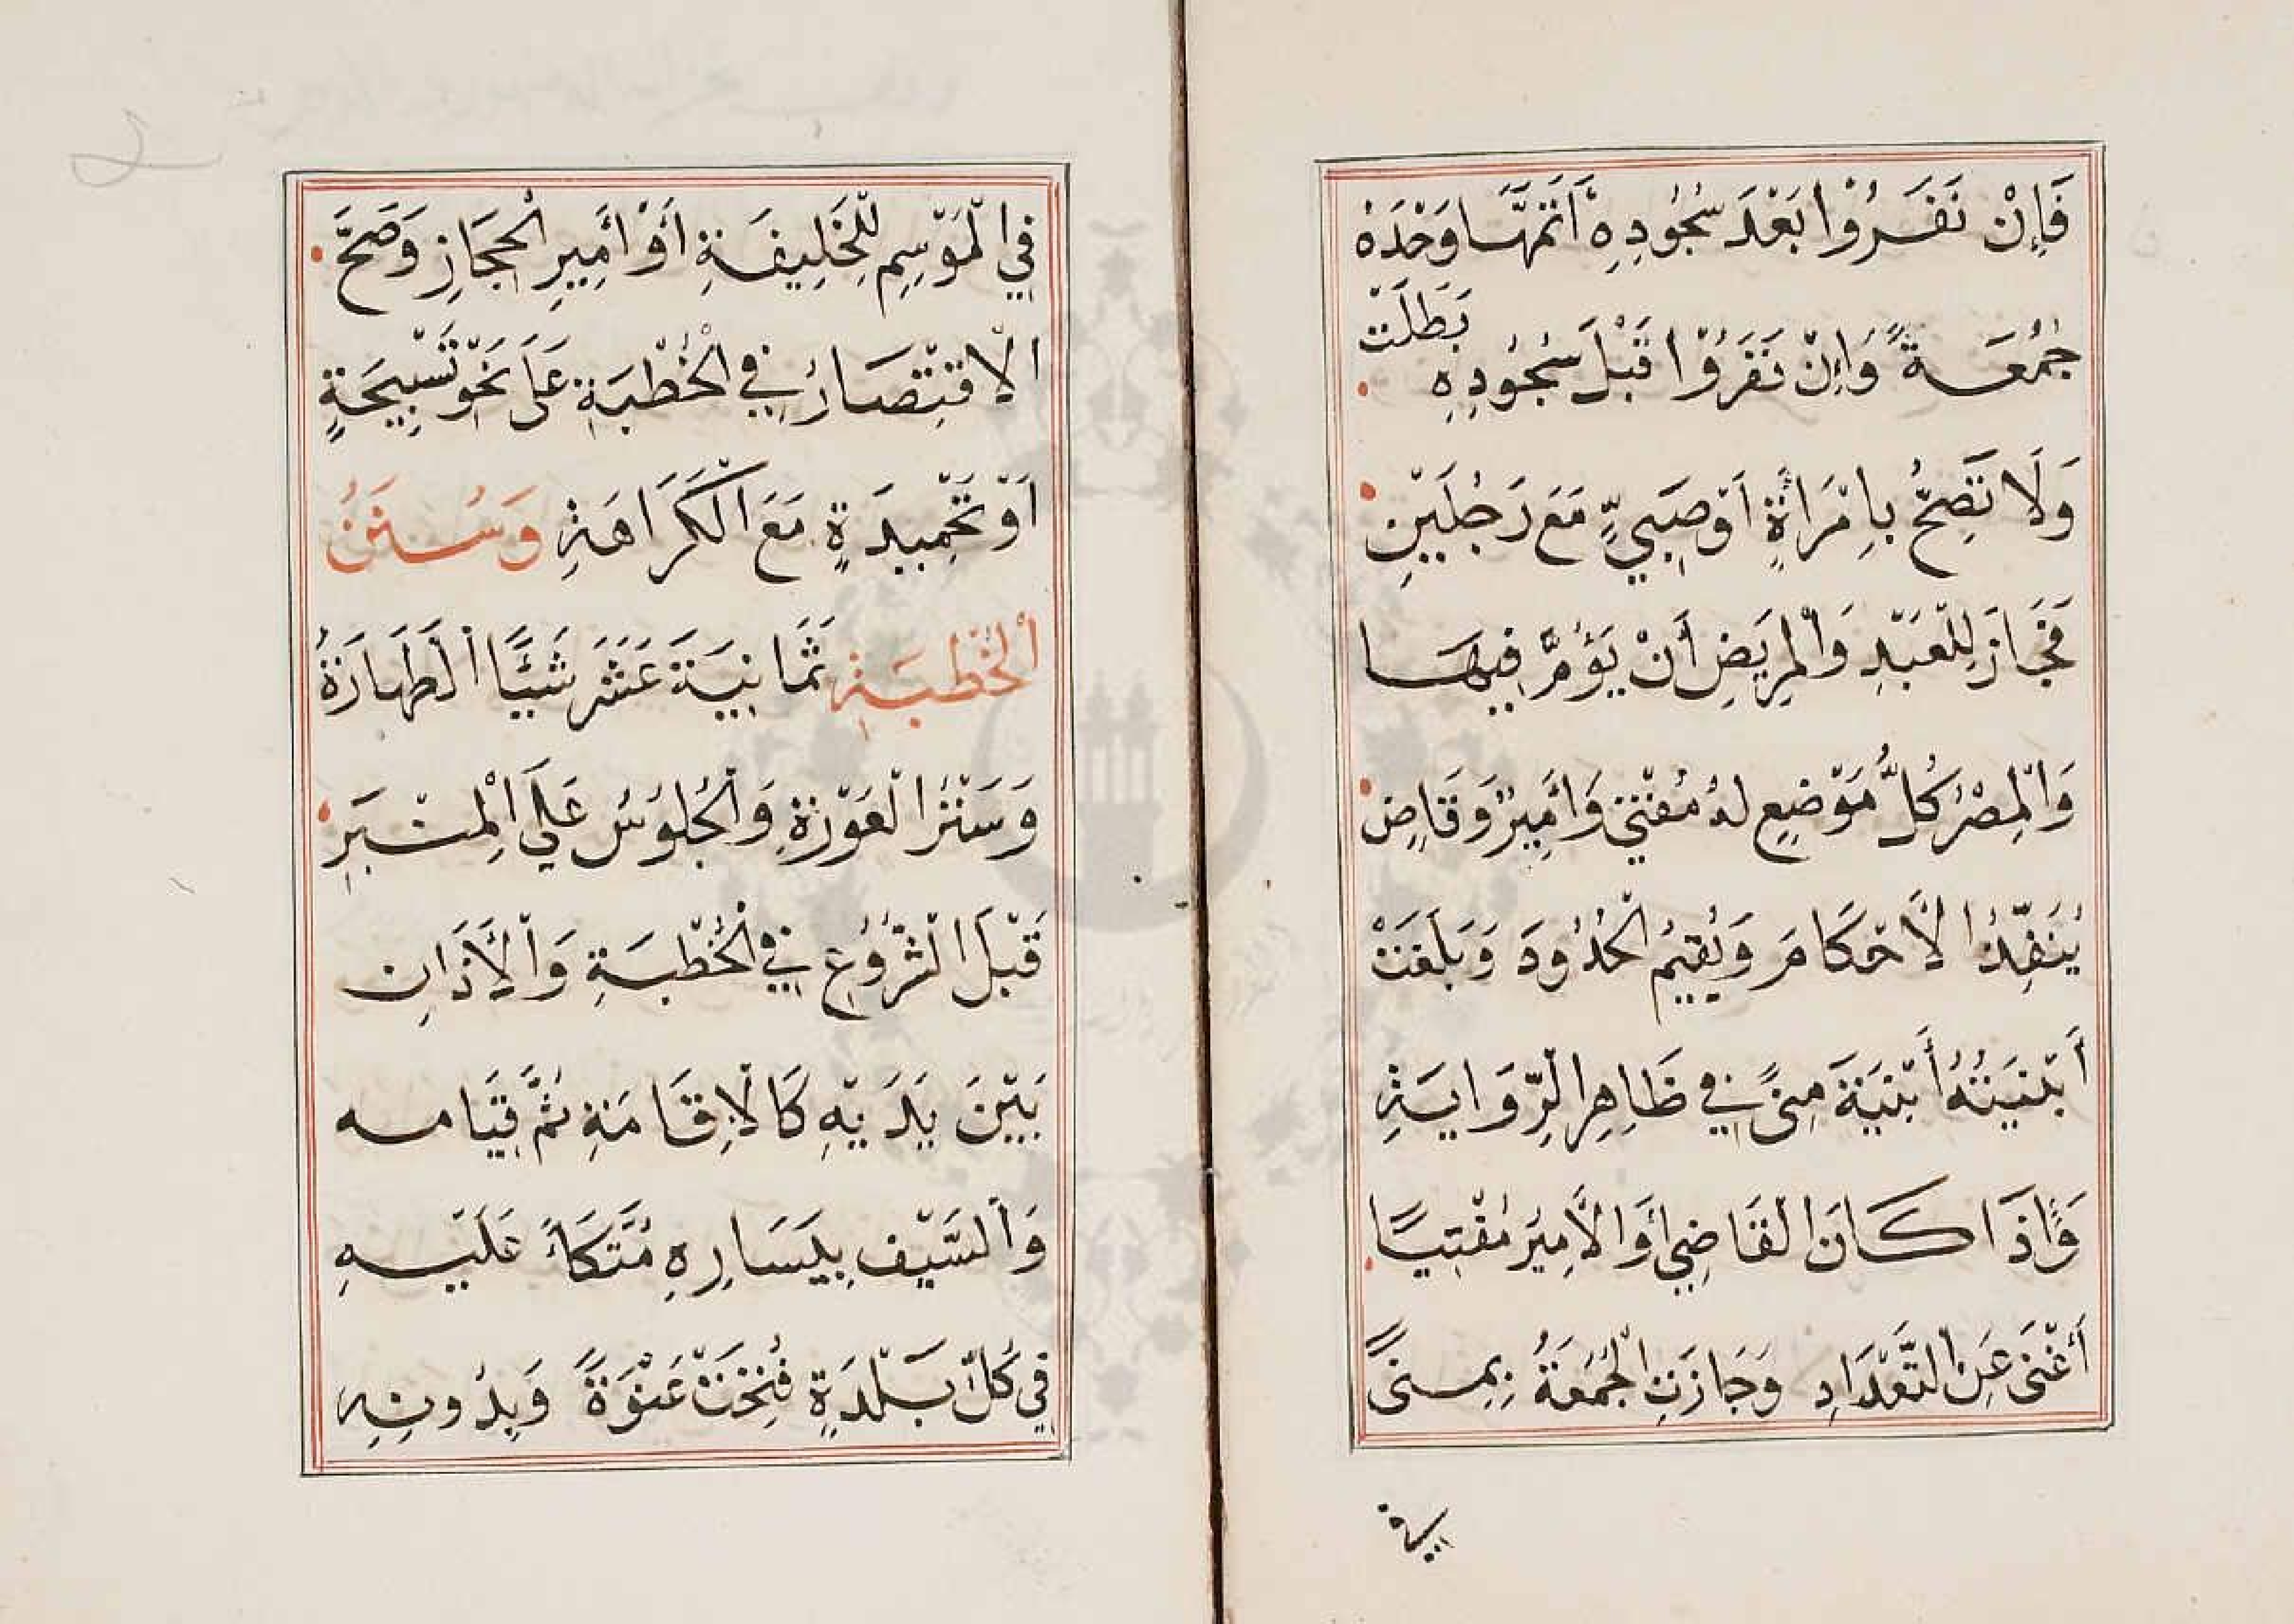 فَإِنْ نَفَرُوْا بَعْدَ سُجُودِهِ أَتَمَّهَا وَحْدَهُ
جُمُعَةً وَإِنْ نَفَرُوْا قَبْلَ سُجُودِهِ بَطَلَتْ
وَلَا تَصِحُّ بِامْرَأَةٍ اَوْ صَبِيٍّ مَعَ رَجُلَيْنِ
فَجَازَ لِلْعَبْدِ وَالْمَرِيضِ أَنْ يَؤُمَّ فِيهَا
وَالْمِصْرُ كُلُّ مَوْضِعٍ لَهُ مُفْتِيْ وَأَمِيْرٌ وَقَاضٍ
يُنَفِّذُ الْأَحْكَامَ وَيُقِيمُ الْحُدُودَ وَبَلَغَتْ
أَبْنِيَتُهُ أَبْنِيَةَ مِنًى فِي ظَاهِرِ الرِّوَايَةِ
وَإِذَا كَانَ الْقَاضِي أَوَالْأَمِيرُ مُفْتِيًا
أَغْنَى عَنِ التَّعْدَادِ وَجَازَتِ الْجُمُعَةُ بِمِنًى
فِي الْمَوْسِمِ لِلْخَلِيفَةِ أَوْ أَمِيرِ الْحِجَازِ وَصَحَّ
الْاِقْتِصَارُ فِي الْخُطْبَةِ عَلَى نَحْوِ تَسْبِيحَةٍ
اَوْ تَحْمِيدَةٍ مَعَ الْكَرَاهَةِ وَسُنَنُ
الْخُطْبَةِ ثَمَانِيَةَ عَشَرَ شَيْئًا اَلطَّهَارَةُ
وَسَتْرُ الْعَوْرَةِ وَالْجُلُوسُ عَلَى الْمِنْبَرِ
قَبْلَ الشُّرُوْعِ فِي الْخُطْبَةِ وَالْأَذَانِ
بَيْنَ يَدَيْهِ كَالْاِقَامَةِ ثُمَّ قِيَامه
وَالسَّيْفِ بِيَسَارِهِ مُتَّكَأً عَلَيْهِ
فِي كُلِّ بَلْدَةٍ فُتِحَتْ عَنْوَةً وَبِدُونِهِ